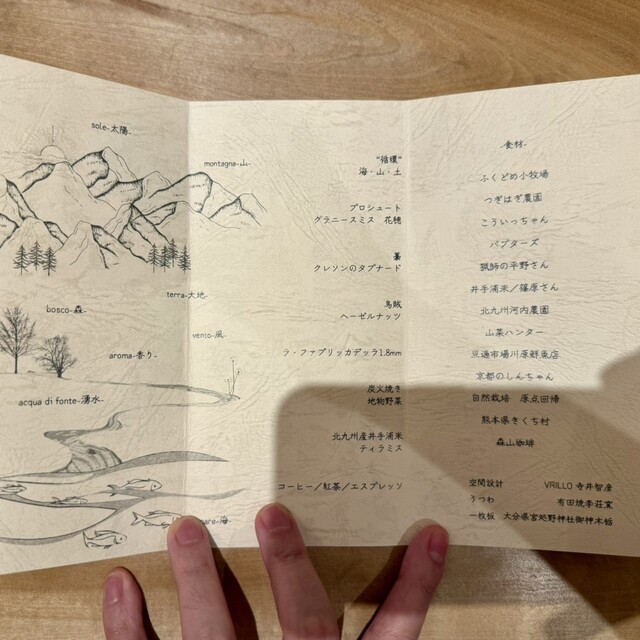 sole-太陽.
montagna-山-
terra-大地-
bosco-森-
vento-風-
aroma-香り-
acqua di fonte-湧水-
mare-海
“循環”
海・山・土
プロシュート
グラニースミス 花穂
クレソンのタプナード
烏賊
ヘーゼルナッツ
ラ・ファブリッカデッラ1.8mm
炭火焼き
地物野菜
北九州産井手浦米
ティラミス
コーヒー／紅茶／エスプレッソ
-食材-
ふくどめ小牧場
つぎはぎ農園
こういっちゃん
バプターズ
猟師の平野さん
井手浦米／篠原さん
北九州河内農園
山菜ハンター
旦過市場川原鮮魚店
京都のしんちゃん
自然栽培 原点回帰
熊本県きくち村
森山珈琲
空間設計 VRILLO 寺井智彦
うつわ 有田焼李荘窯
一枚板 大分県宮処野神社御神木栃